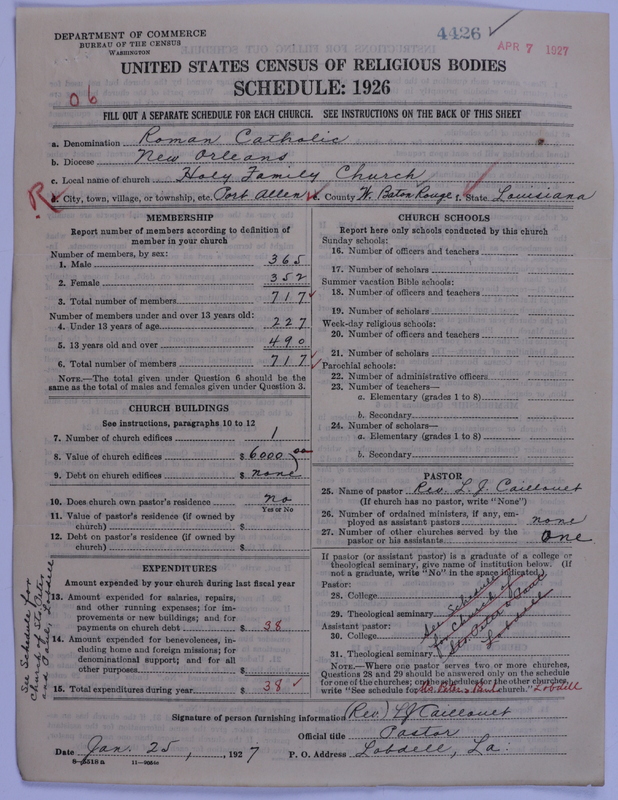 DEPARTMENT OF COMMERCE
BUREAU OF THE CENSUS
WASHINGTON
4426
APR 7 1927
UNITED STATES CENSUS OF RELIGIOUS BODIES
SCHEDULE: 1926
06
FILL OUT A SEPARATE SCHEDULE FOR EACH CHURCH. SEE INSTRUCTIONS ON THE BACK OF THIS SHEET
a. Denomination Roman Catholic
b. Diocese New Orleans
c. Local name of church Holy Family Church
R
d. City, town, village, or township, etc. Port Allen e. County W. Baton Rouge f. State Louisiana
MEMBERSHIP
Report number of members according to definition of
member in your church
Number of members, by sex:
1. Male 365
2. Female 352
3. Total number of members 717
Number of members under and over 13 years old:
4. Under 13 years of age 227
5. 13 years old and over 490
6. Total number of members 717
NOTE.—The total given under Question 6 should be the
same as the total of males and females given under Question 3.
CHURCH BUILDINGS
See instructions, paragraphs 10 to 12
7. Number of church edifices 1
8. Value of church edifices $ 6000 00
9. Debt on church edifices $ none
10. Does church own pastor's residence no
Yes or No
11. Value of pastor's residence (if owned by
church) $
12. Debt on pastor's residence (if owned by
church) $
EXPENDITURES
Amount expended by your church during last fiscal year
13. Amount expended for salaries, repairs,
and other running expenses; for im-
provements or new buildings; and for
payments on church debt $ 38
14. Amount expended for benevolences, in-
cluding home and foreign missions; for
denominational support; and for all
other purposes $
15. Total expenditures during year $ 38
See Schedule for
Church of Sts Peter
and Paul, Lobdell
CHURCH SCHOOLS
Report here only schools conducted by this church
Sunday schools:
16. Number of officers and teachers
17. Number of scholars
Summer vacation Bible schools:
18. Number of officers and teachers
19. Number of scholars
Week-day religious schools:
20. Number of officers and teachers
21. Number of scholars
Parochial schools:
22. Number of administrative officers
23. Number of teachers—
a. Elementary (grades 1 to 8)
b. Secondary
24. Number of scholars—
a. Elementary (grades 1 to 8)
b. Secondary
PASTOR
25. Name of pastor Rev. L. J. Caillouet
(If church has no pastor, write "None")
26. Number of ordained ministers, if any, em-
ployed as assistant pastors none
27. Number of other churches served by the
pastor or his assistants One
If pastor (or assistant pastor) is a graduate of a college or
theological seminary, give name of institution below. (If
not a graduate, write "No" in the space indicated.)
Pastor:
28. College
29. Theological seminary
Assistant pastor:
30. College
31. Theological seminary
See Schedule
for Church of
Sts Peter & Paul
Lobdell
NOTE.—Where one pastor serves two or more churches,
Questions 28 and 29 should be answered only on the schedule
for one of the churches; on the schedules for the other churches,
write "See schedule for Sts. Peter & Paul church." Lobdell
Signature of person furnishing information (Rev.) L J Caillouet
Official title Pastor
Date Jan. 25, 1927 P. O. Address Lobdell, La.
8—5518 a 11—9054a